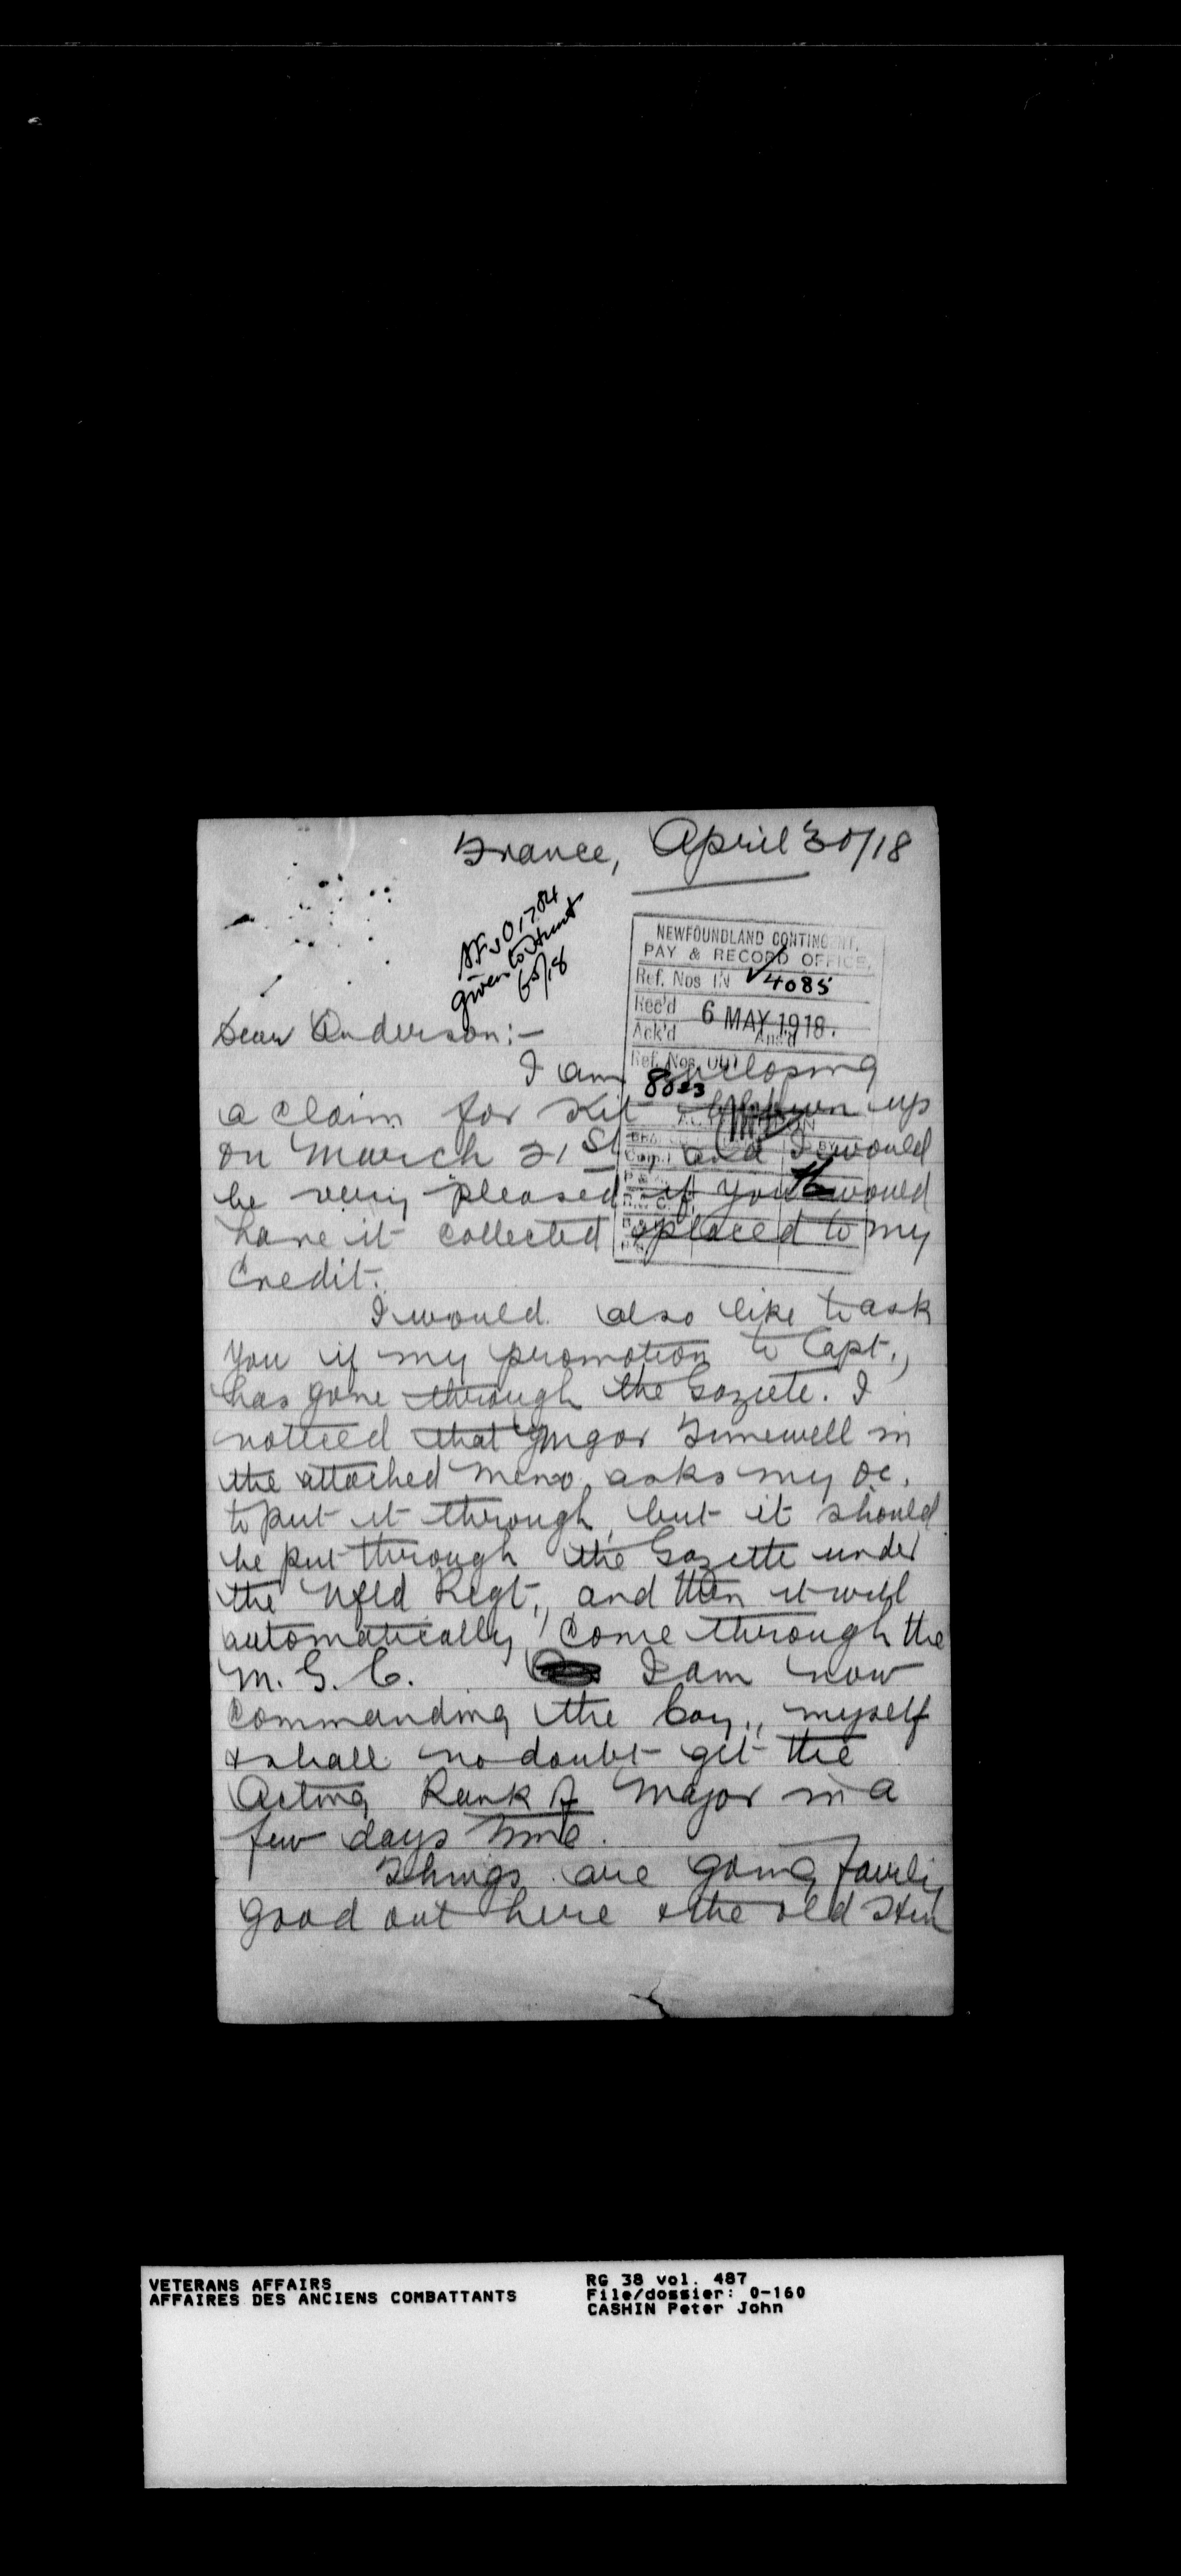 France, April 30/18
given to
6/5/18
NEWFOUNDLAND CONTINGENT,
PAY & RECORD OFFICE.
Ref. Nos IN 4085
Rec'd 6 MAY 1918.
Ack'd Ans'd
Ref. Nos. OUT
Dear Anderson:-
I am enclosing
a claim for Kit blown up
on March 21st, and I would
be very pleased if you would
have it collected & placed to my
Credit.
I would also like to ask
you if my promotion to Capt.,
has gone through the Gazette. I
noticed that Major Timewell in
the attached memo asks my O.C.
to put it through, but it should
be put through the Gazette under
the Nfld Regt., and then it will
automatically come through the
M. G. C. I am now
Commanding the Coy., myself
& shall no doubt get the
Acting Rank of Major in a
few days time.
Things are going fairly
good out here & the old Hun
VETERANS AFFAIRS
AFFAIRES DES ANCIENS COMBATTANTS
RG 38 vol. 487
File/dossier: 0-160
CASHIN Peter John